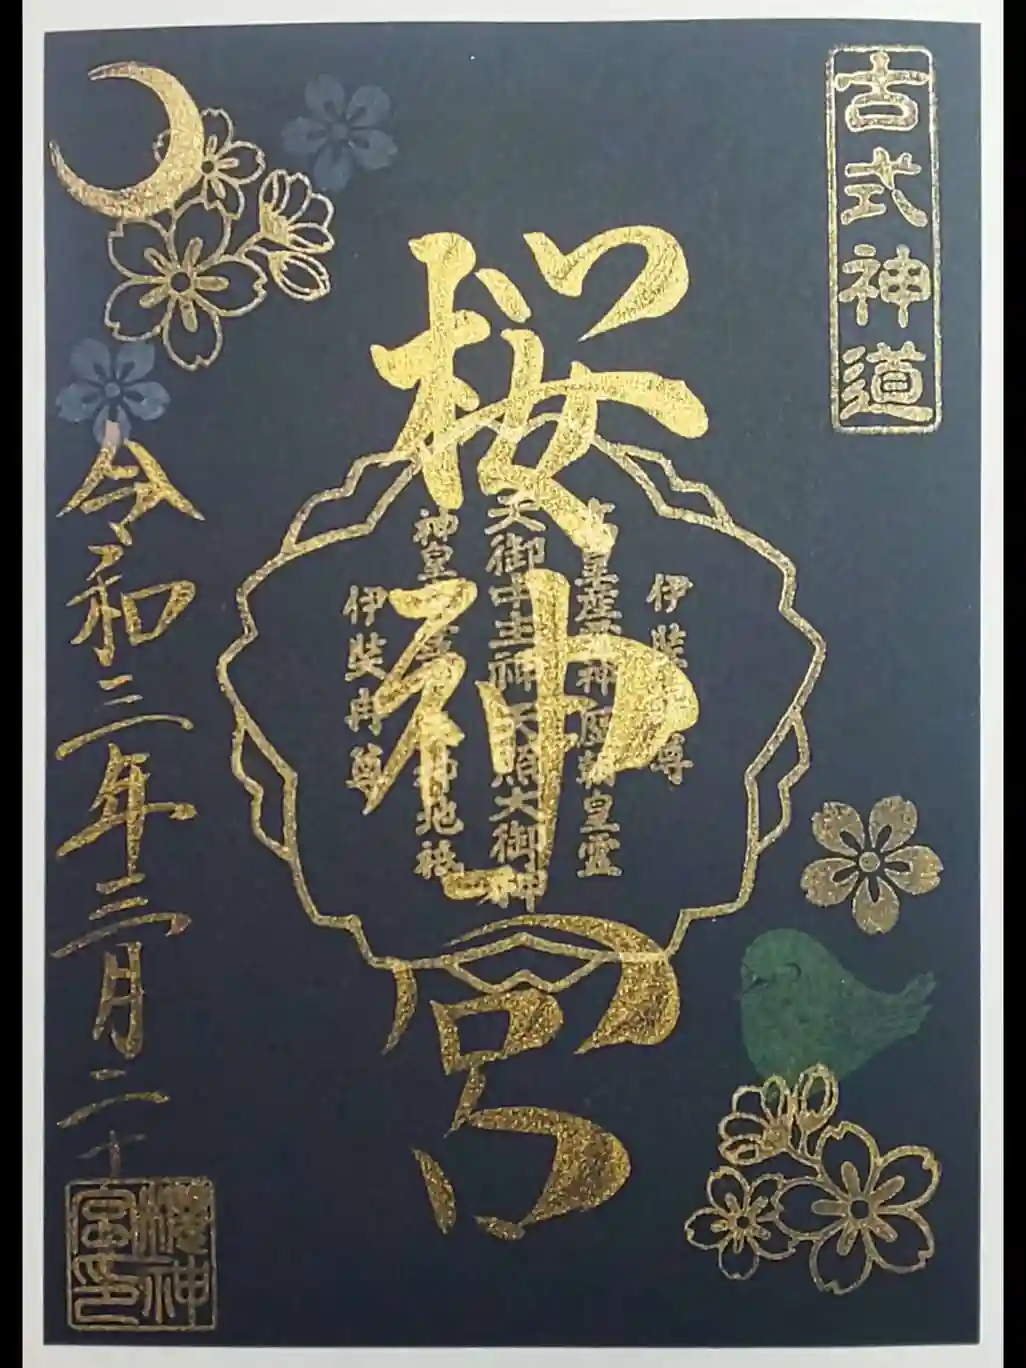 古式神道
桜神宮
伊弉諾尊
高皇産霊神歴朝皇霊
天御中主神天照大御神
神皇産霊神天神地祇
伊弉冉尊
令和三年三月二十
櫻神宮印